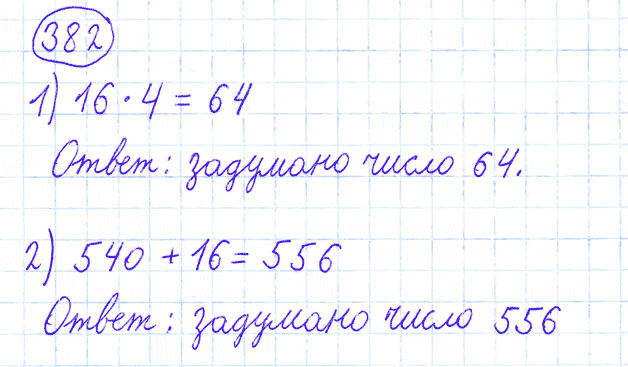 382
1) 16 · 4 = 64
Ответ: задумано число 64.
2) 540 + 16 = 556
Ответ: задумано число 556